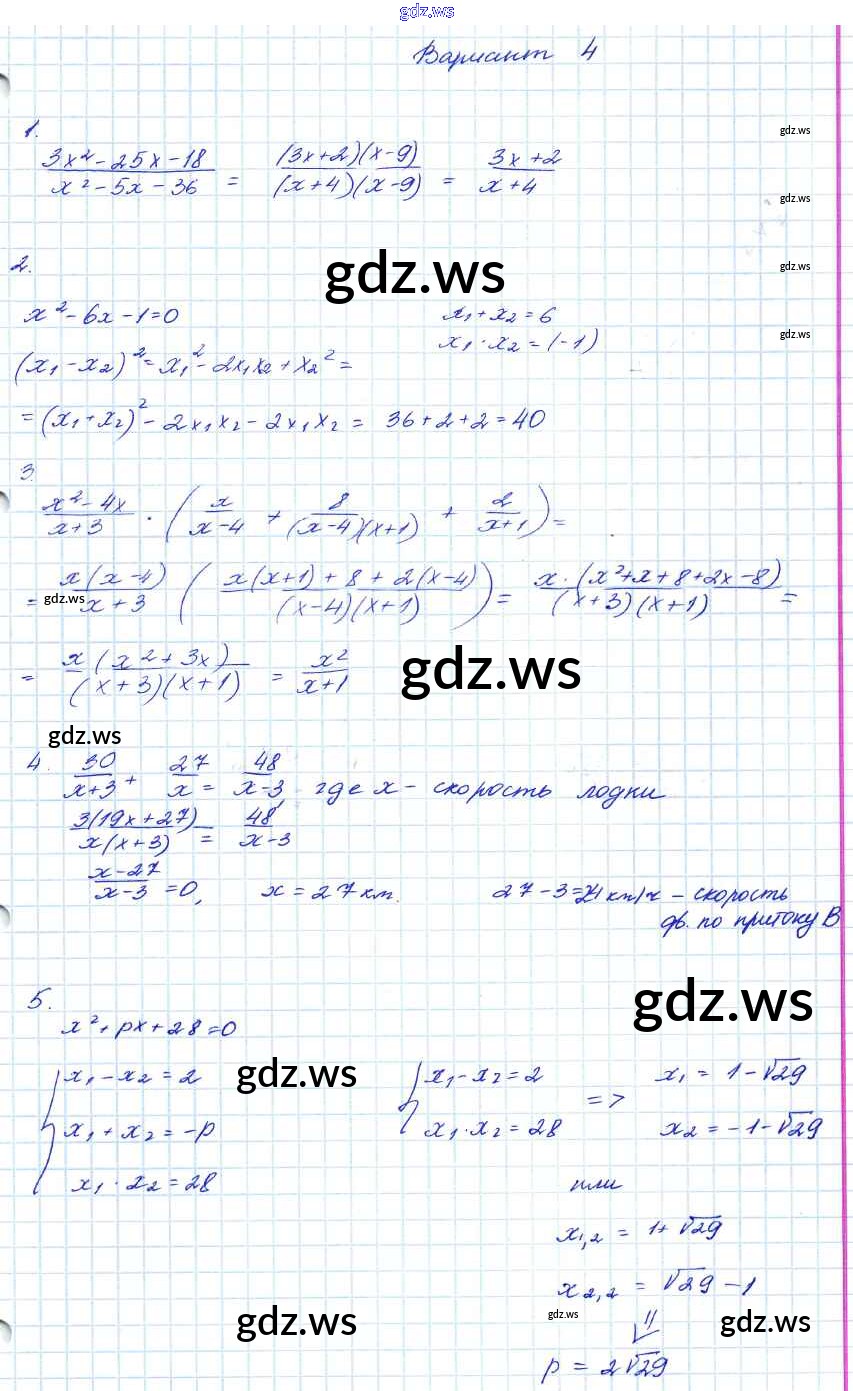 gdz.ws
Вариант 4
gdz.ws
1.
(3x² - 25x - 18)/(x² - 5x - 36) = ((3x+2)(x-9))/((x+4)(x-9)) = (3x+2)/(x+4)
gdz.ws
2.
gdz.ws
gdz.ws
x² - 6x - 1 = 0    x₁ + x₂ = 6
gdz.ws
(x₁ - x₂)² = x₁² - 2x₁x₂ + x₂² =    x₁ · x₂ = (-1)
= (x₁ + x₂)² - 2x₁x₂ - 2x₁x₂ = 36 + 2 + 2 = 40
3.
(x² - 4x)/(x+3) · (x/(x-4) + 8/((x-4)(x+1)) + 2/(x+1)) =
= gdz.ws (x(x-4))/(x+3) ((x(x+1) + 8 + 2(x-4))/((x-4)(x+1))) = (x·(x²+x+8+2x-8))/((x+3)(x+1)) =
= (x(x²+3x))/((x+3)(x+1)) = x²/(x+1)
gdz.ws
gdz.ws
4. 30/(x+3) + 27/x = 48/(x-3), где x - скорость лодки
(3(19x+27))/(x(x+3)) = 48/(x-3)
(x-27)/(x-3) = 0, x = 27 км. 27-3=24 км/ч - скорость
дв. по притоку В
5.
gdz.ws
x² + px + 28 = 0
gdz.ws
{ x₁ - x₂ = 2    { x₁ - x₂ = 2    =>    x₁ = 1 - √29
x₁ + x₂ = -p    x₁ · x₂ = 28    x₂ = -1 - √29
x₁ · x₂ = 28    или
x₁,₂ = 1+ √29
x₂,₂ = √29 - 1
gdz.ws
gdz.ws
gdz.ws
p = 2√29